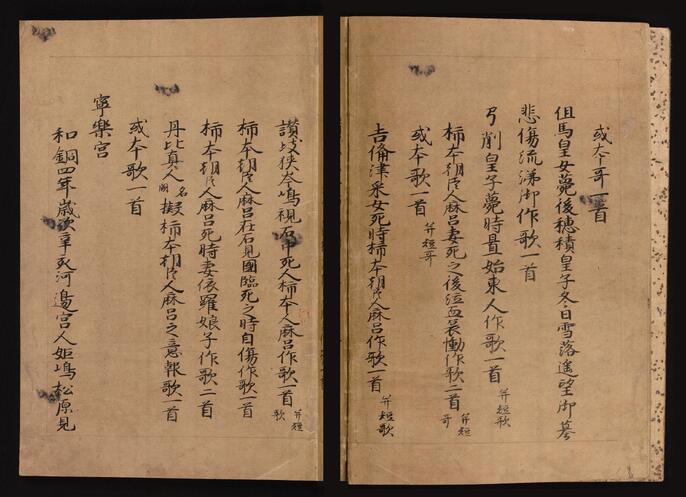 或本哥一首
但馬皇女薨後穂積皇子冬日雪落遙望御墓
悲傷流涕御作歌一首
弓削皇子薨時置始東人作歌一首 并短歌
柿本朝臣人麻呂妻死之後泣血哀慟作歌二首 并短哥
或本歌一首 并短哥
吉備津采女死時柿本朝臣人麻呂作歌一首 并短歌
讃岐狭岑嶋視石中死人柿本人麻呂作歌一首 并短歌
柿本朝臣人麻呂在石見國臨死之時自傷作歌一首
柿本朝臣人麻呂死時妻依羅娘子作歌二首
丹比真人 名闕 擬柿本朝臣人麻呂之意報歌一首
或本歌一首
寧樂宮
和銅四年歳次辛亥河邊宮人姫嶋松原見